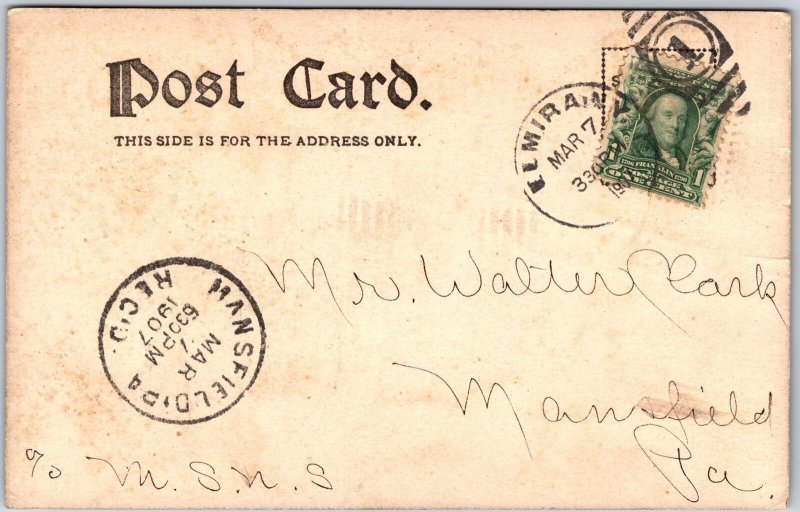 Post Card.
THIS SIDE IS FOR THE ADDRESS ONLY.
ELMIRA, N
MAR 7
330 P
1790 FRANKLIN 1790
POSTAGE
1 ONE CENT
Mr. Walter Clark
Mansfield
Pa.
MANSFIELD, PA
MAR
7
630 PM
1907
REC'D.
c/o M. S. N. S